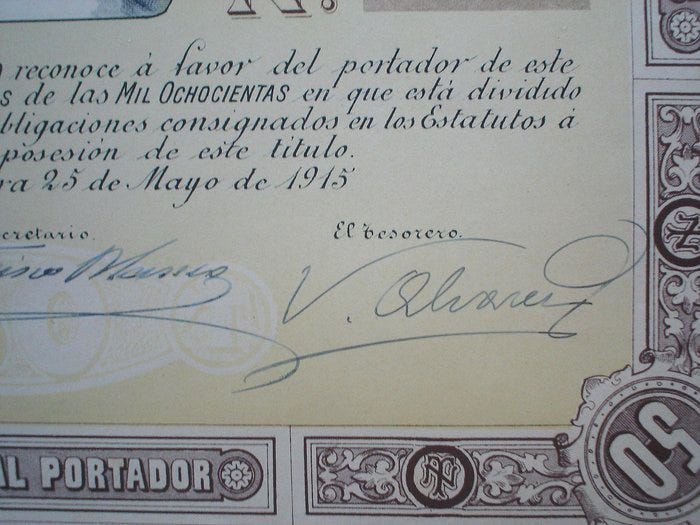 Nº.
reconoce á favor del portador de este
s de las MIL OCHOCIENTAS en que está dividido
bligaciones consignados en los Estatutos á
posesión de este título.
ra 25 de Mayo de 1915
cretario. El Tesorero.
V. Alvarez
AL PORTADOR
50